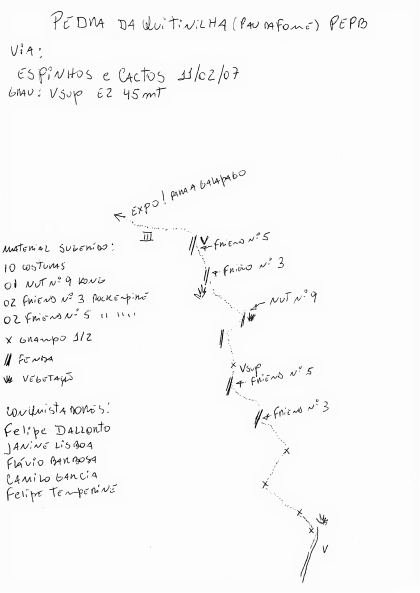 PEDRA DA QUITINILHA (PAU DA FOME) PEPB
VIA:
ESPINHOS e CACTOS 11/02/07
GRAU: Vsup E2 45mt
EXPO! PARA A GALAPAGO
III
V
FRIEND Nº 5
FRIEND Nº 3
NUT Nº 9
Vsup
FRIEND Nº 5
FRIEND Nº 3
V
MATERIAL SUGERIDO:
10 COSTURAS
01 NUT Nº 9 KONG
02 FRIEND Nº 3
02 FRIEND Nº 5 " "
X GRAMPO 1/2
FENDA
VEGETAÇÃO
CONQUISTADORES:
Felipe DALLORTO
JANINE LISBOA
FLÁVIO BARBOSA
CAMILO GARCIA
Felipe